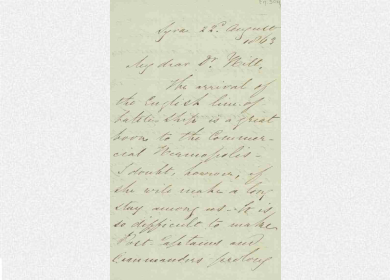 Syra 22d. August
1863
My dear Dr. Hill,
The arrival of
the English line of
battle ship is a great
boon to the Commer-
cial Hermopolis -
I doubt, however, if
she will make a long
stay among us. It is
so difficult to make
Post Captains and
Commanders